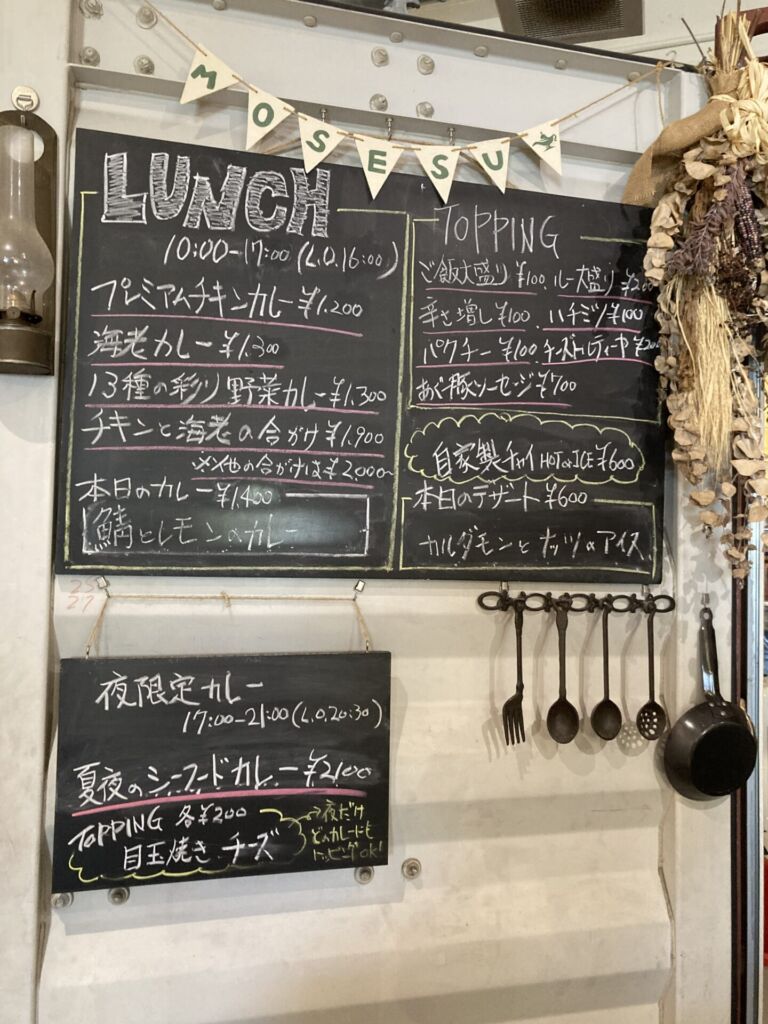 MOSESU
LUNCH
10:00-17:00 (L.O.16:00)
プレミアムチキンカレー ¥1.200
海老カレー ¥1.300
13種の彩り野菜カレー ¥1.300
チキンと海老の合がけ ¥1.900
※他の合がけは¥2,000~
本日のカレー ¥1.400
鯖とレモンのカレー
TOPPING
ご飯大盛り ¥100 ルー大盛り ¥200
辛さ増し ¥100 ハチミツ ¥100
パクチー ¥100
あぐー豚ソーセージ ¥700
自家製チャイ HOT or ICE ¥600
本日のデザート ¥600
カルダモンとナッツのアイス
25
27
夜限定カレー
17:00-21:00 (L.O.20:30)
夏夜のシーフードカレー ¥2100
TOPPING 各¥200
目玉焼き チーズ
→夜だけ
どのカレーにも
トッピングOK!